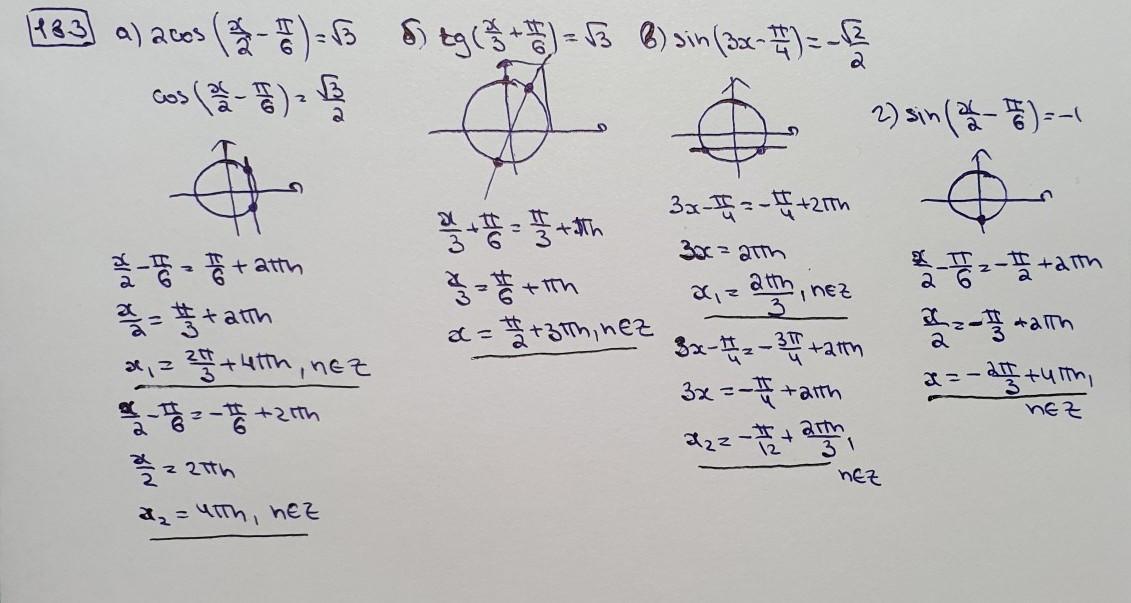 18.3 а) 2cos(x/2 - π/6) = √3
cos(x/2 - π/6) = √3/2
x/2 - π/6 = π/6 + 2πn
x/2 = π/3 + 2πn
x₁ = 2π/3 + 4πn, n∈Z
x/2 - π/6 = -π/6 + 2πn
x/2 = 2πn
x₂ = 4πn, n∈Z
б) tg(x/3 + π/6) = √3
x/3 + π/6 = π/3 + πn
x/3 = π/6 + πn
x = π/2 + 3πn, n∈Z
в) sin(3x - π/4) = -√2/2
3x - π/4 = -π/4 + 2πn
3x = 2πn
x₁ = 2πn/3, n∈Z
3x - π/4 = -3π/4 + 2πn
3x = -π/4 + 2πn
x₂ = -π/12 + 2πn/3,
n∈Z
г) sin(x/2 - π/6) = -1
x/2 - π/6 = -π/2 + 2πn
x/2 = -π/3 + 2πn
x = -2π/3 + 4πn,
n∈Z